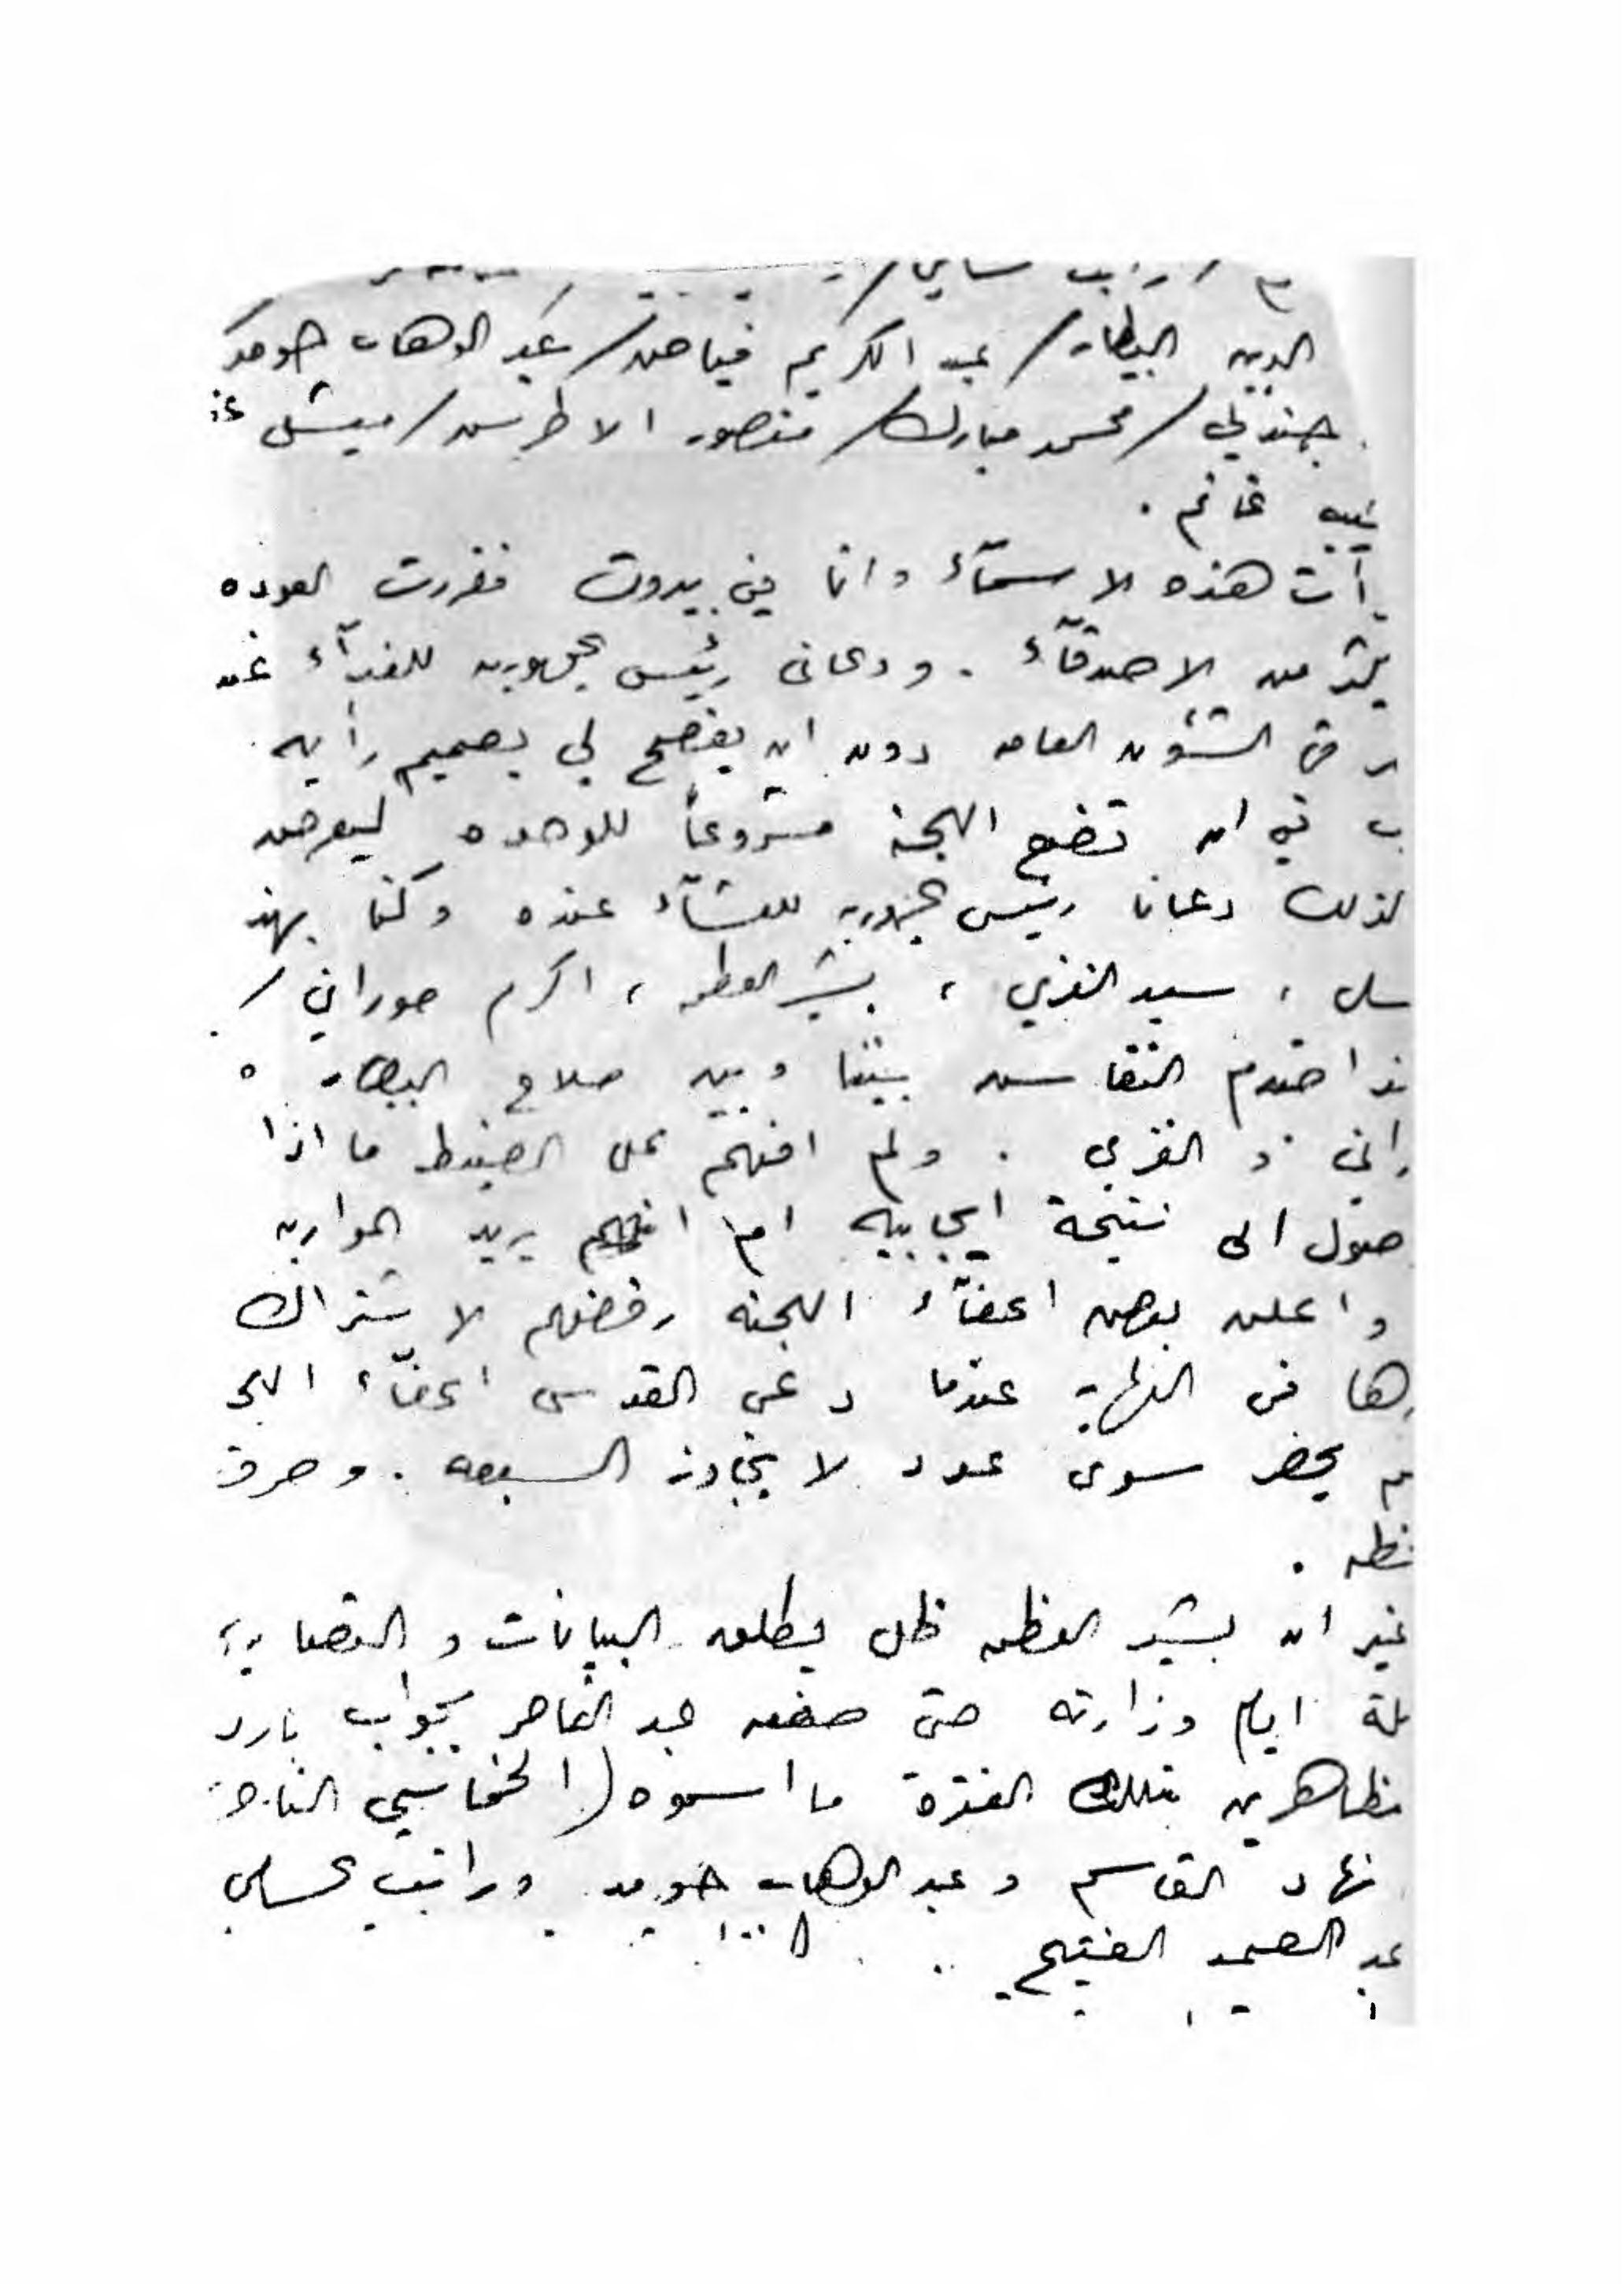 الدين البيطار / عبد الكريم فياض / عبد الوهاب حومد
جندلي / محمد مبارك / منصور الاطرش / ميشل
غانم .
أت هذه الاسمآء وانا في بيروت فقررت العوده
من الاصدقآء . ودعاني رئيس الجمهوريه للغدآء
في الشؤون العامه دون ان يفصح لي بصميم رأيه
ب في ان تضع اللجنة مشروعاً للوحده ليعرض
لذلك دعانا رئيس الجمهوريه للعشآء عنده وكنا بهذ
سلي ، سعيد الغزي ، بشير العظمه ، اكرم حوراني /
احتدم النقاش بيننا وبين صلاح البيطار
راني و الغزي . ولم افهم على الضبط ما اذا
صول الى نتيجة ايجابيه ام انهم يريد المواربه
واعلن بعض اعضآء اللجنه رفضهم الاشتراك
ها في النهاية عندما دعى القدسي اعضآء اللج
م يحضر سوى عدد لا يتجاوز السبعه . وصرف
ظمه .
غير ان بشير العظمه ظل يطلق البيانات و التصاري
لة ايام وزارته حتى صفعه عبد الناصر بجواب بارد
تظاهرين تلك الفترة ما اسموه (الخماسي
نهاد القاسم و عبد الوهاب حومد وراتب حسامي
عبد الصمد الفتيح